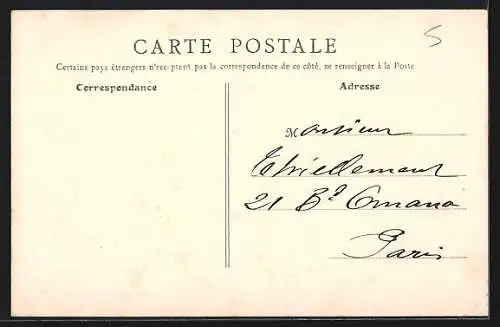 5
CARTE POSTALE
Certains pays étrangers n'acceptant pas la correspondance de ce côté, se renseigner à la Poste
Correspondance
Adresse
Monsieur
21 Bd Ornano
Paris